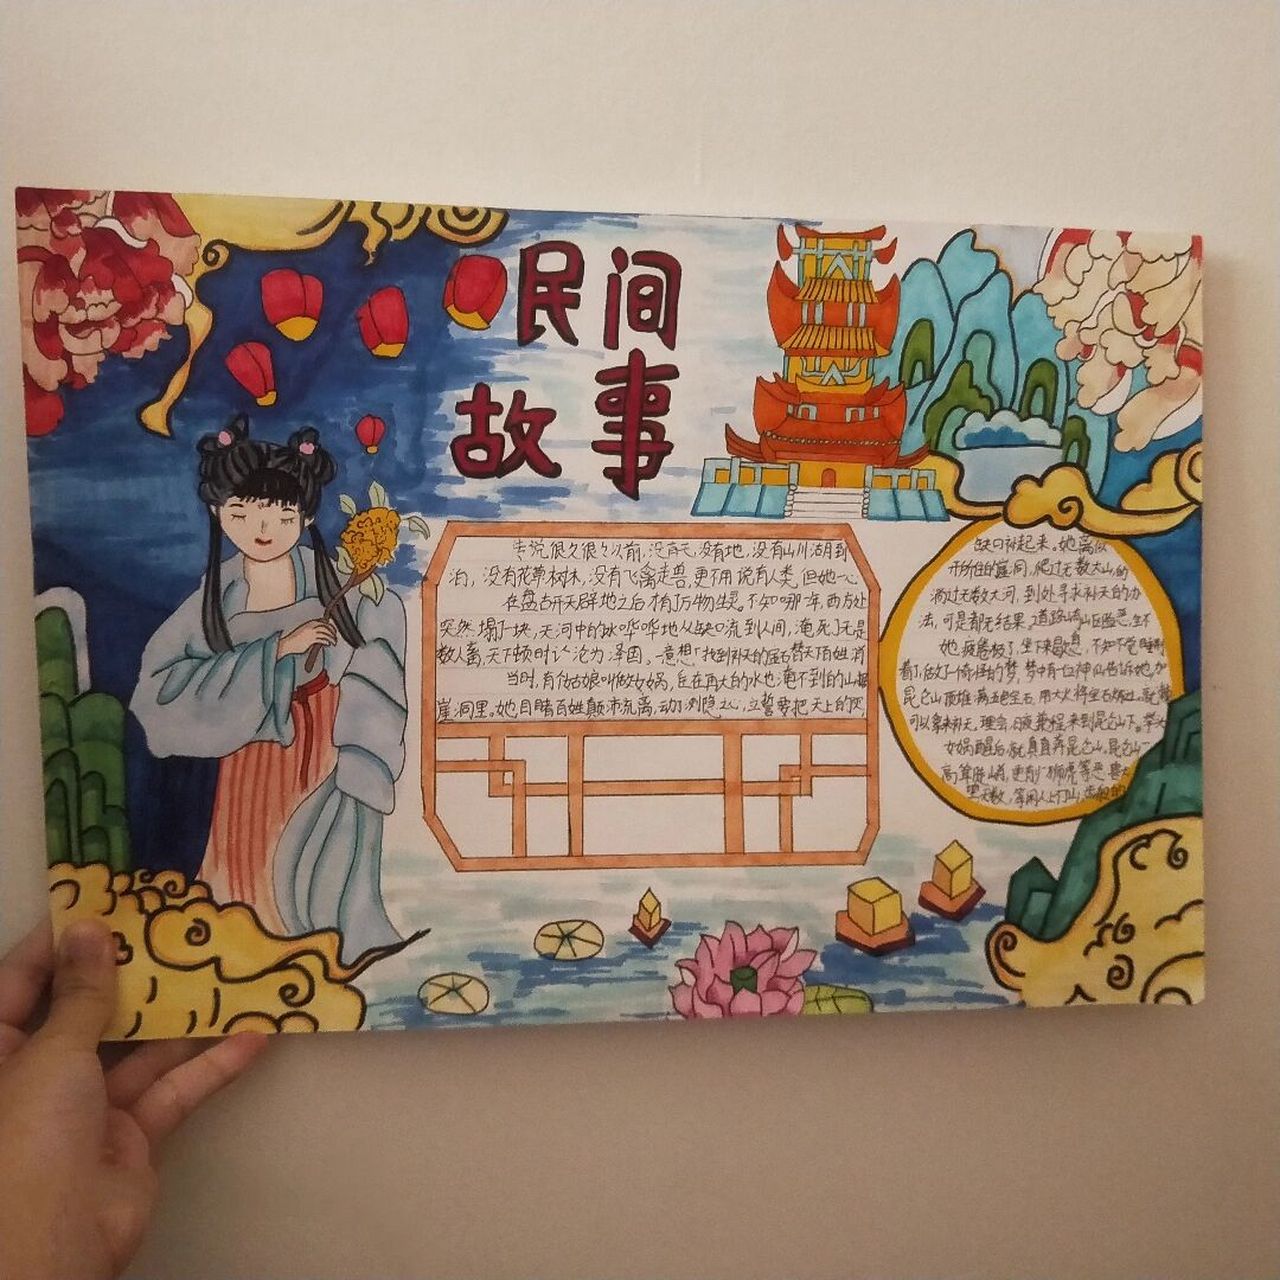 民间
故事
传说很久很久以前,没有天,没有地,没有山川湖
泊,没有花草树木,没有飞禽走兽,更不用说有人类,但她一心
在盘古开天辟地之后才有了万物生灵。不知哪一年,西方处
突然塌了一块,天河中的水哗哗地从缺口流到人间,淹死了无是
数人畜,天下顿时沦为泽国。一意想找到补天的
当时,有位姑娘叫做女娲,住在再大的水也淹不到的山
崖洞里。她目睹百姓颠沛流离,动了恻隐之心,立誓要把天上的
缺口补起来。她离
开所住的崖洞,爬过无数大山,
淌过无数大河,到处寻求补天的办
法,可是都无结果。道路崎
她疲倦极了,坐下来歇息,不知不觉睡
着了,做了个奇怪的梦,梦中有一位神仙告诉她,
昆仑山顶堆满五色宝石,用大火将宝石炼
可以拿来补天,来到昆仑山下。
女娲醒后,就直奔昆仑山。昆仑山
高耸陡峭,更有狮虎等恶兽